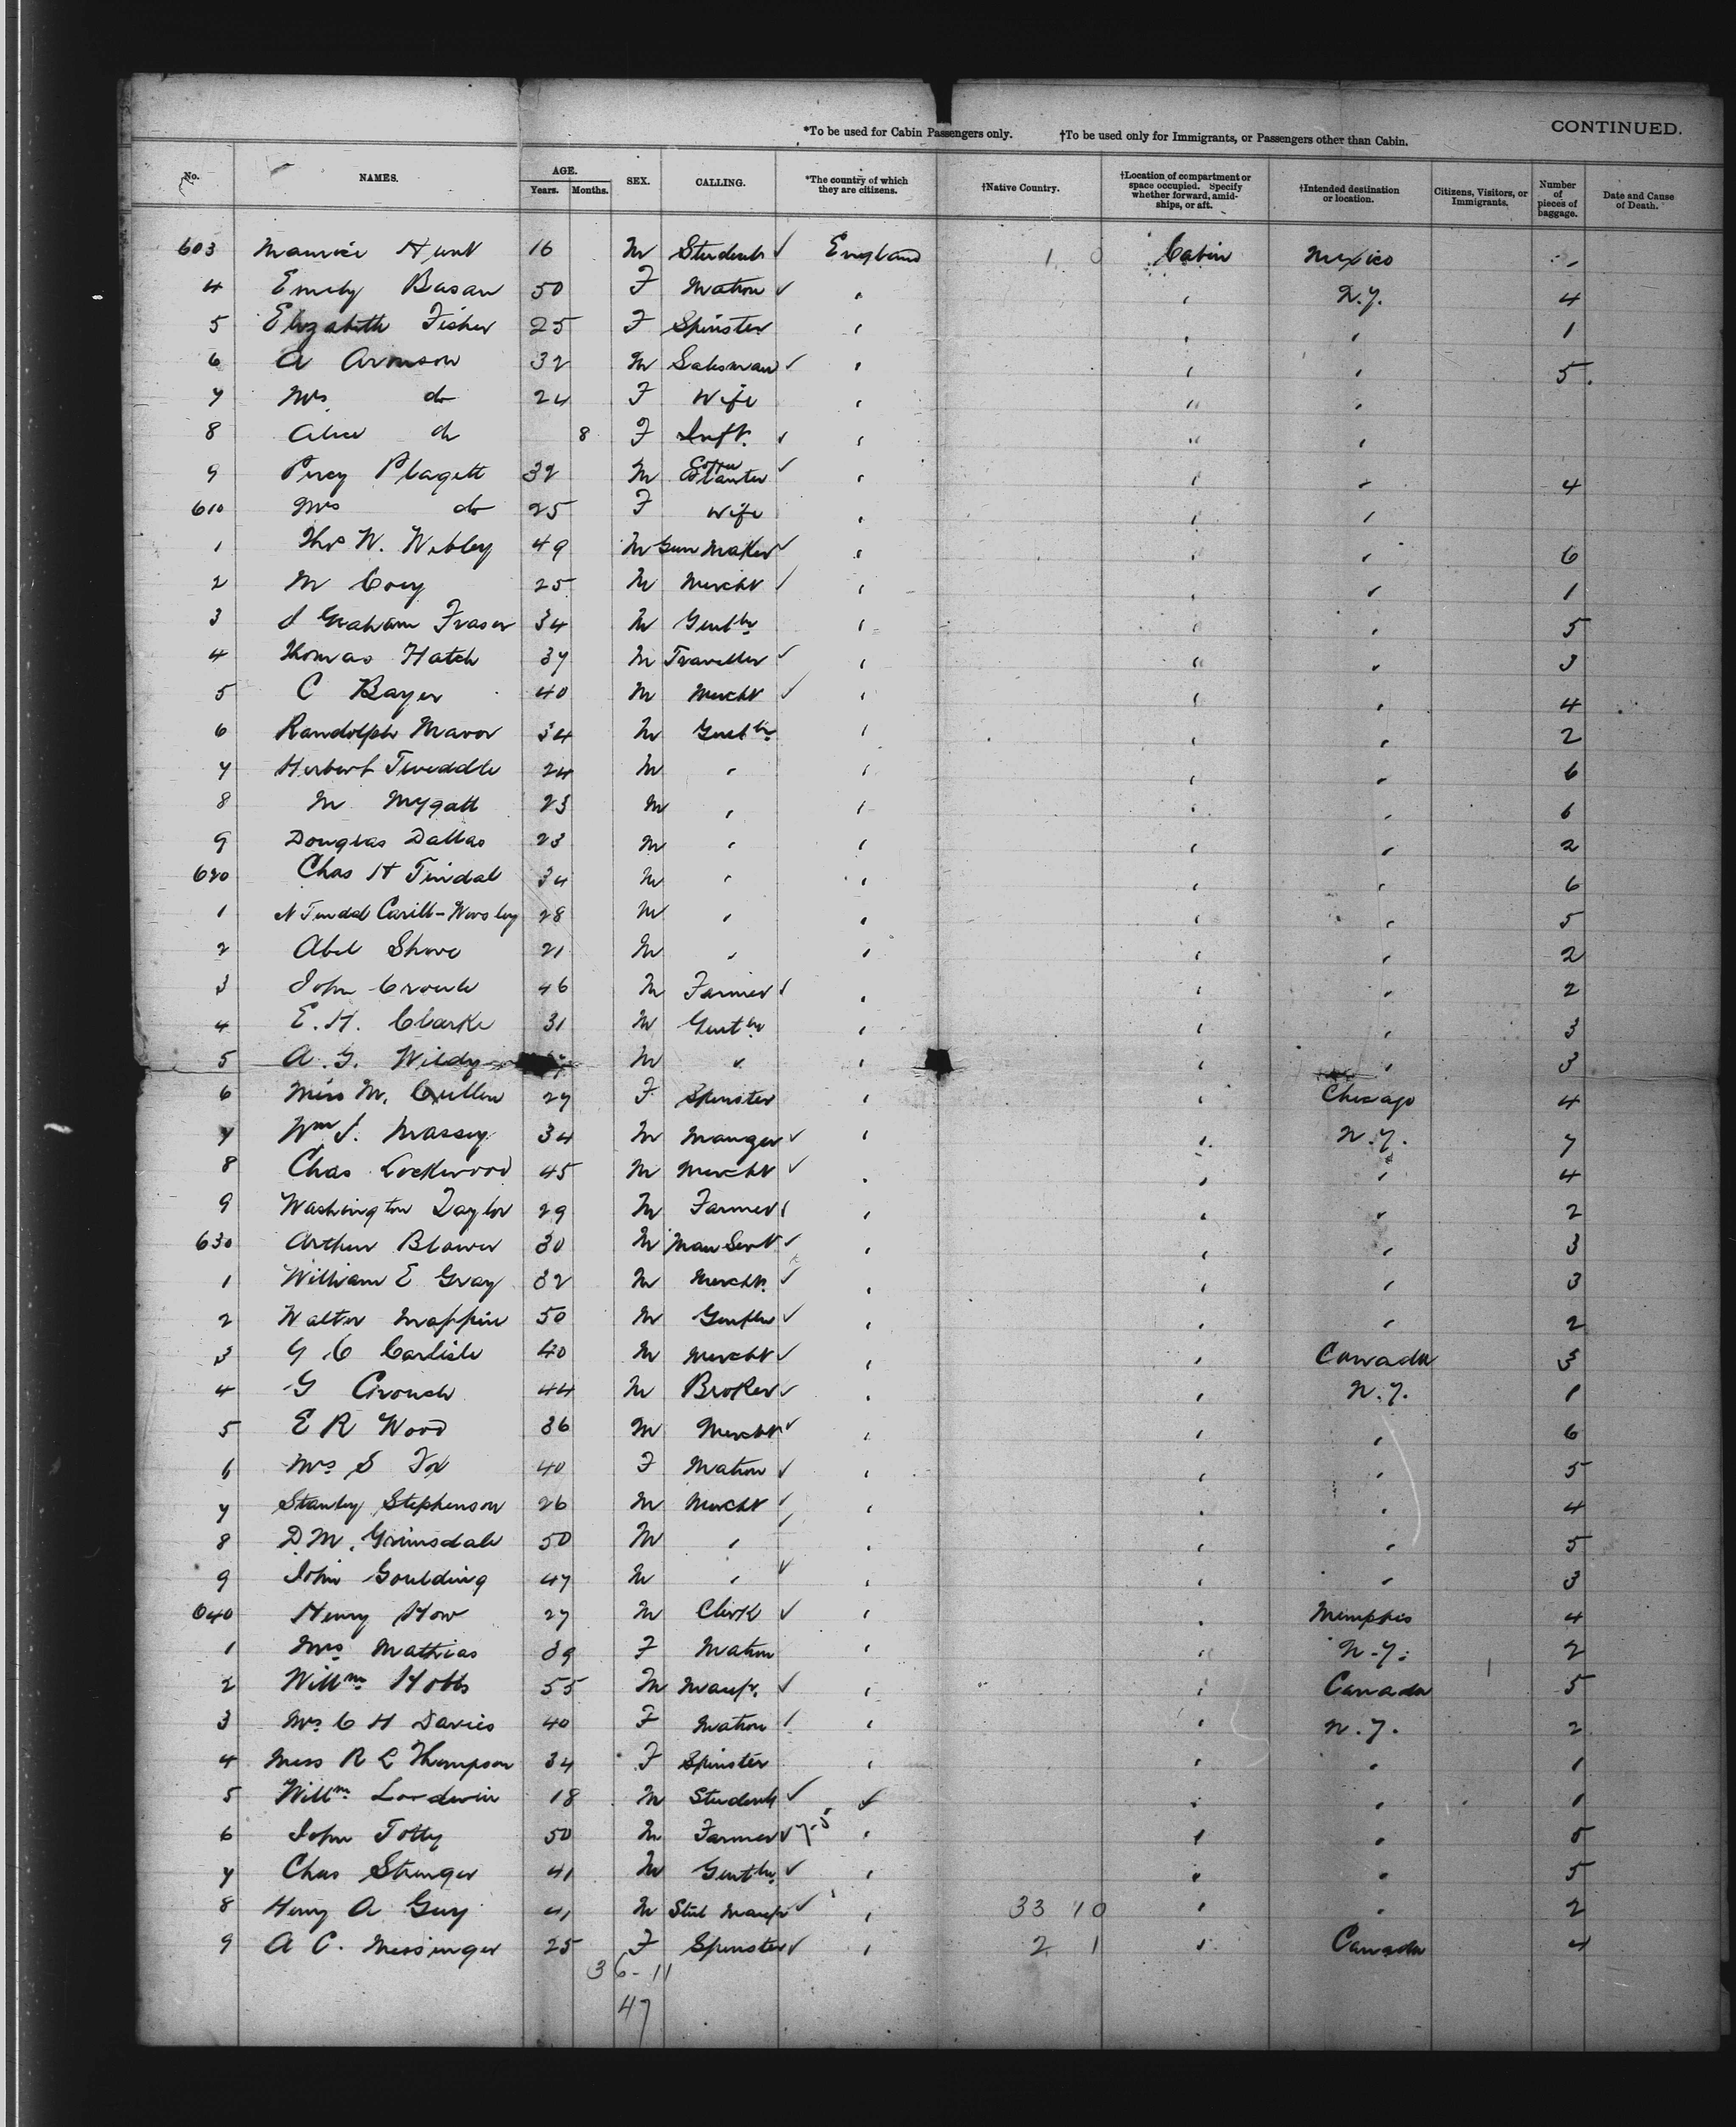 CONTINUED.
*To be used for Cabin Passengers only. †To be used only for Immigrants, or Passengers other than Cabin.
No. NAMES. AGE. Years. Months. SEX. CALLING. *The country of which they are citizens. †Native Country. †Location of compartment or space occupied. Specify whether forward, amidships, or aft. †Intended destination or location. Citizens, Visitors, or Immigrants. Number of pieces of baggage. Date and Cause of Death.
603 Maurice Hunt 16 M Student ✓ England 1 0 Cabin Mexico
4 Emily Basan 50 F Matron ✓ " " N.Y. 4
5 Elizabeth Fisher 25 F Spinster " " " 1
6 A Aronson 32 M Salesman ✓ " " " 5.
7 Mrs do 24 F Wife " " "
8 Alice do 8 F Inft. ✓ " " "
9 Percy Plagett 32 M Coffee Planter ✓ " " " 4
610 Mrs do 25 F Wife " " "
1 Thos W. Webley 49 M Gun Maker ✓ " " " 6
2 M Cory 25 M Mercht ✓ " " " 1
3 J Graham Fraser 34 M Gentln " " " 5
4 Thomas Hatch 37 M Traveller ✓ " " " 3
5 C Bayer 40 M Mercht ✓ " " " 4
6 Randolph Mavor 34 M Gentln " " " 2
7 Herbert Tweddle 24 M " " " " 6
8 M Mygatt 23 M " " " " 6
9 Douglas Dallas 23 M " " " " 2
620 Chas H Tindal 34 M " " " " 6
1 N Tindal Carill-Worsley 28 M " " " " 5
2 Abel Shave 21 M " " " " 2
3 John 46 M Farmer ✓ " " " 2
4 E. H. Clarke 31 M Gentln " " " 3
5 A. G. Wildy M " " " " 3
6 Miss M. Cullen 27 F Spinster " " Chicago 4
7 Wm J. Massey 34 M Manger ✓ " " N.Y. 7
8 Chas Lockwood 45 M Mercht ✓ " " " 4
9 Washington Taylor 29 M Farmer ✓ " " " 2
630 Arthur Blower 30 M Man Servt ✓ " " " 3
1 William E Gray 32 M Mercht. ✓ " " " 3
2 Walter Mappin 50 M Gentln ✓ " " " 2
3 G C Carlisle 40 M Mercht ✓ " " Canada 3
4 G Crouch 44 M Broker ✓ " " N.Y. 1
5 E R Wood 36 M Mercht ✓ " " " 6
6 Mrs S Fox 40 F Matron ✓ " " " 5
7 Stanley Stephenson 26 M Mercht ✓ " " " 4
8 D. M. Grimsdale 50 M " ✓ " " " 5
9 John Goulding 47 M " ✓ " " " 3
640 Henry How 27 M Clerk ✓ " " Memphis 4
1 Mrs Mathias 39 F Matron " " N.Y. 2
2 Willm Hobbs 55 M Manfr. ✓ " " Canada 5
3 Mrs C H Davies 40 F Matron ✓ " " N.Y. 2
4 Miss R L Thompson 34 F Spinster " " " 1
5 Willm 18 M Student ✓ ✓ " " 1
6 John Totty 50 M Farmer ✓ " " " 5
7 Chas Stringer 41 M Gentln ✓ " " " 5
8 Henry A Guy 41 M Steel Manfr ✓ " 33 10 " " 2
9 A C. Messinger 25 F Spinster ✓ " 2 1 " Canada 4
36-11
47